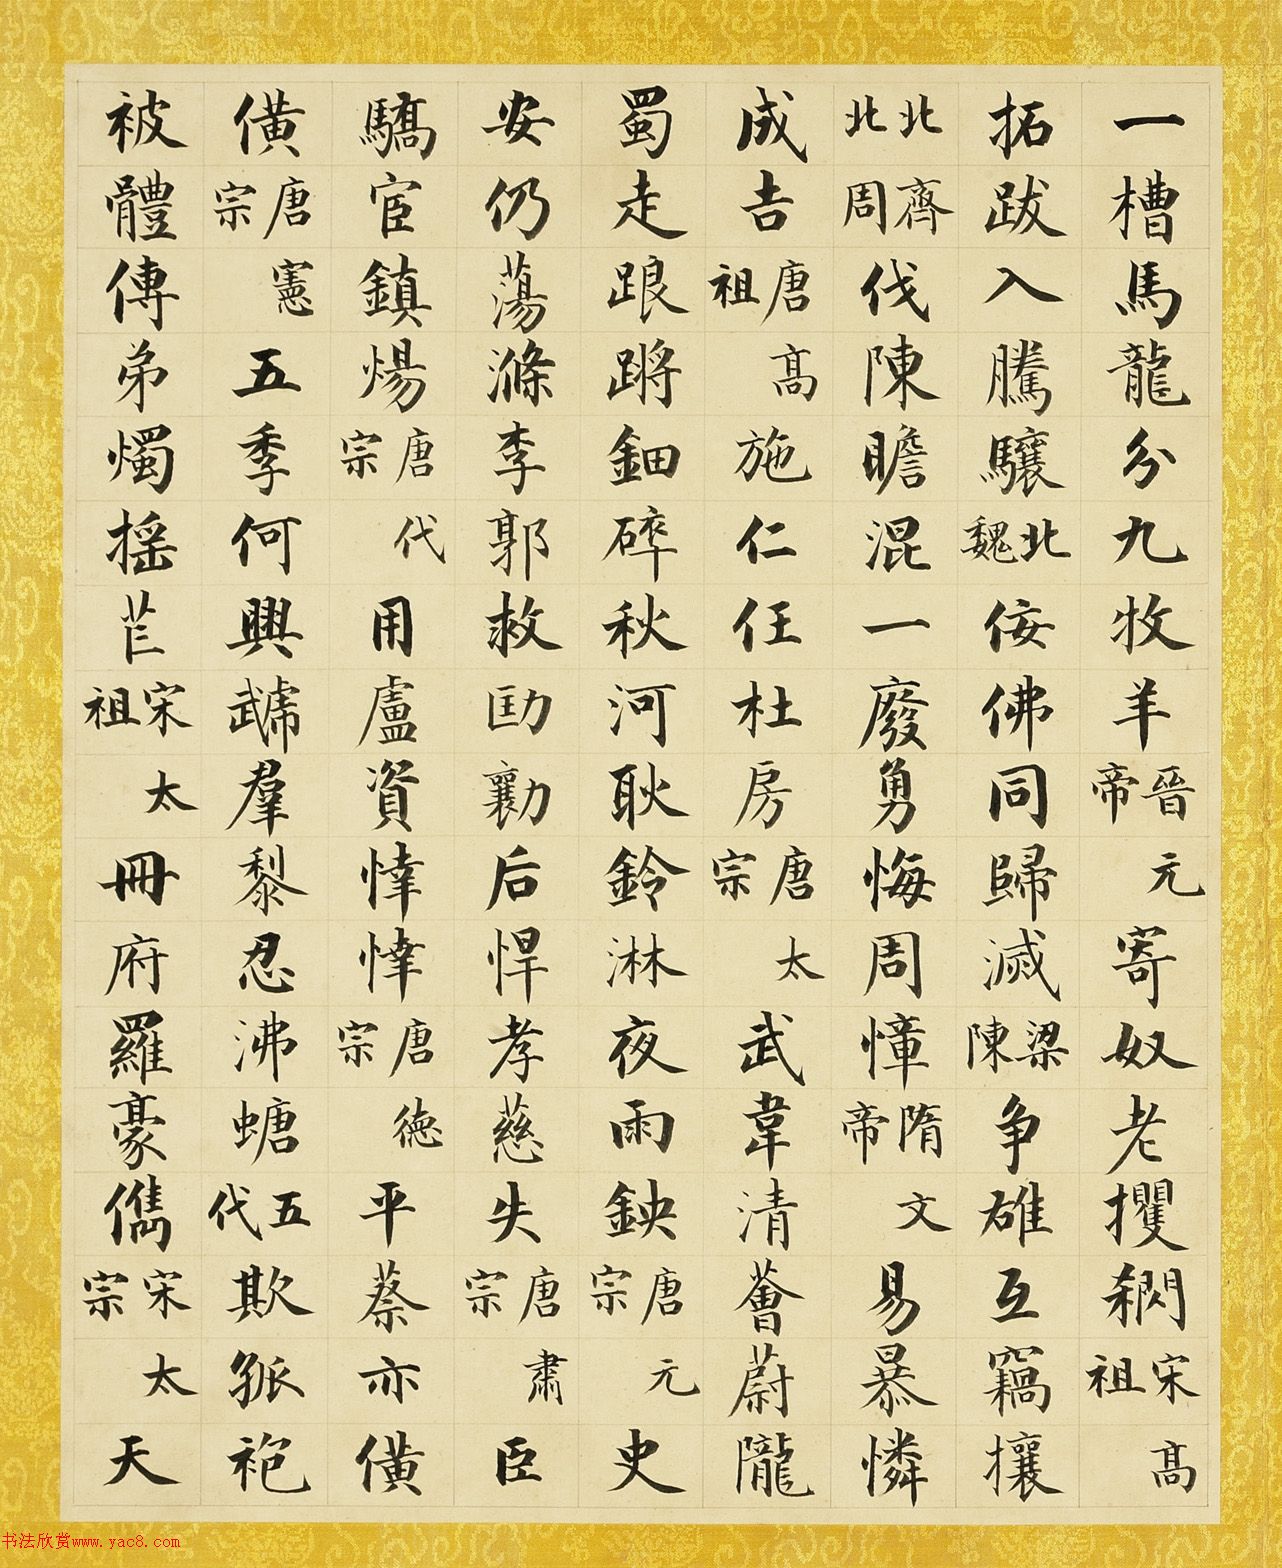 一槽馬龍分九牧羊晉元帝寄奴老攫𥻦閃宋高祖
拓跋入騰驤北魏佞佛同歸滅梁陳争雄互竊攘
北齊北周伐陳瞻混一廢勇悔周慞隋文帝易暴憐
成吉唐高祖施仁任杜房唐太宗武韋清薈蔚隴
蜀走踉蹡鈿碎秋河耿鈴淋夜雨鉠唐元宗史
安仍蕩滌李郭救劻勷后悍孝慈失唐肅宗臣
驕宦鎮煬唐代宗用盧資悻悻唐德宗平蔡亦僙
僙唐憲宗五季何興虣羣黎忍沸螗五代欺孤袍
被體傳弟燭摇芒宋太祖冊府羅豪儁宋太宗天
书法欣赏www.yac8.com